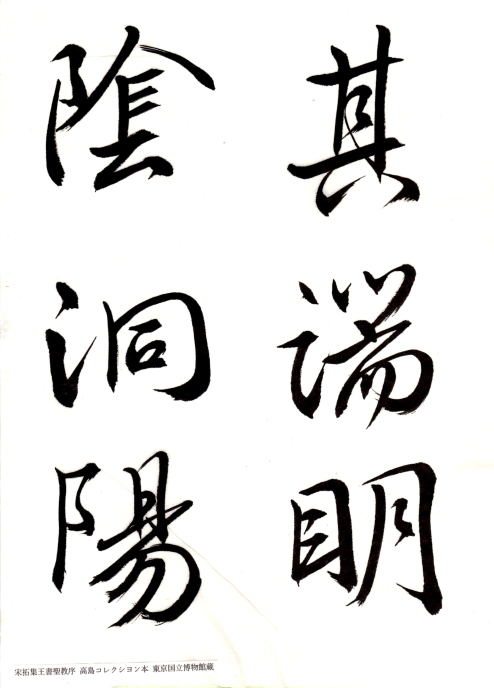 其端明
陰洞陽
宋拓集王書聖教序 高島コレクション本 東京国立博物館蔵